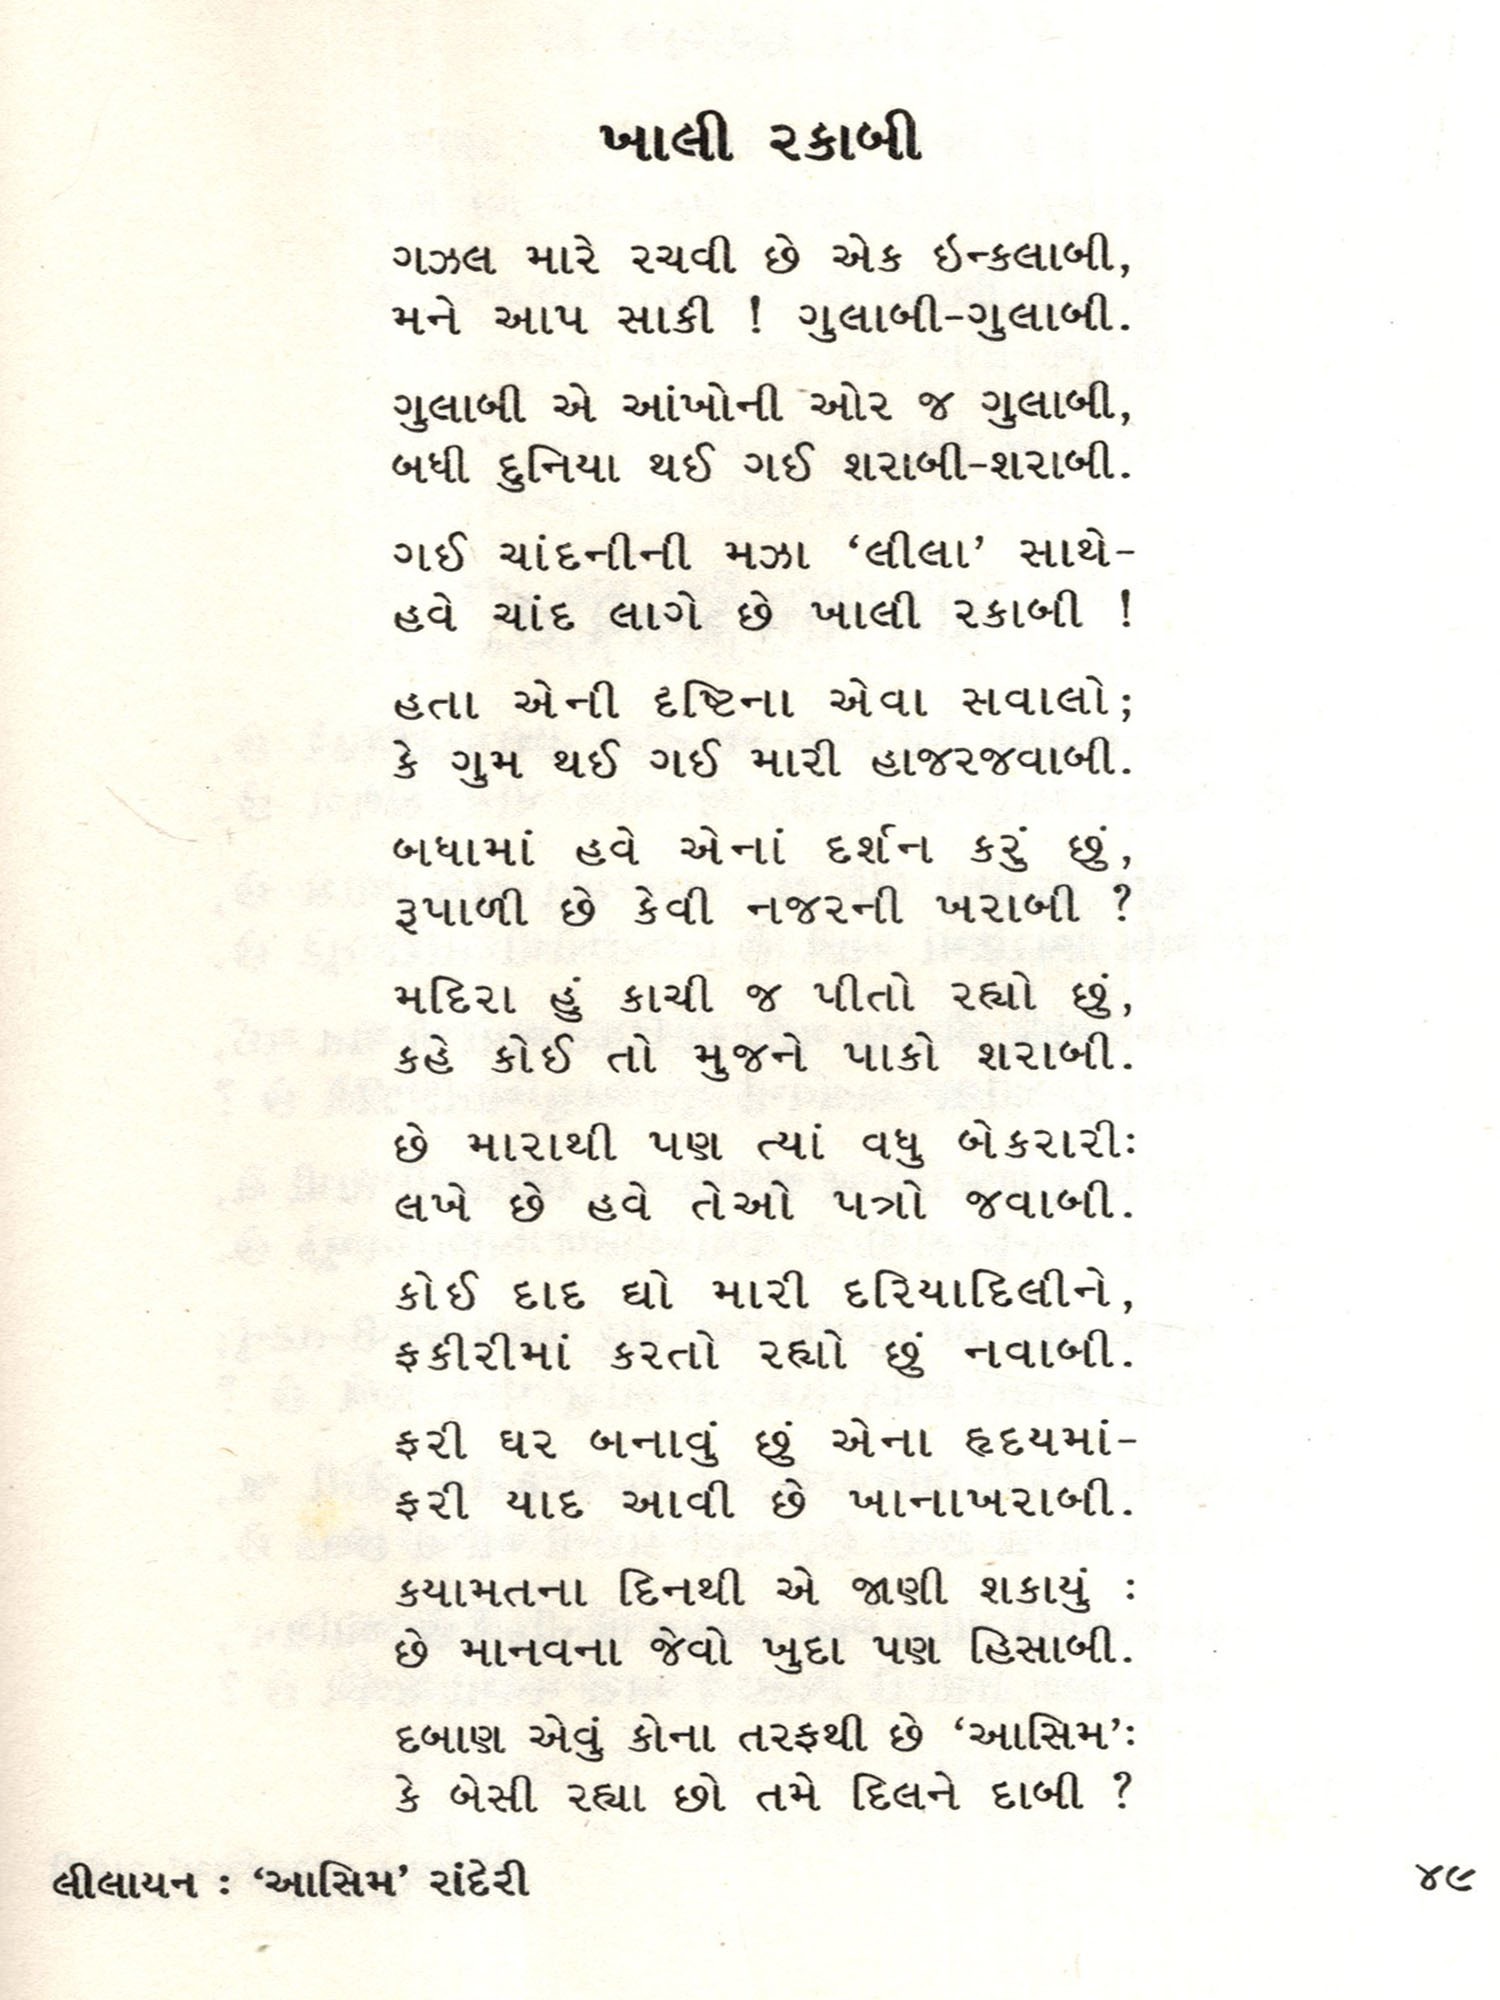 ખાલી રકાબી
ગઝલ મારે રચવી છે એક ઇન્કલાબી,
મને આપ સાકી ! ગુલાબી-ગુલાબી.
ગુલાબી એ આંખોની ઓર જ ગુલાબી,
બધી દુનિયા થઈ ગઈ શરાબી-શરાબી.
ગઈ ચાંદનીની મઝા ‘લીલા’ સાથે-
હવે ચાંદ લાગે છે ખાલી રકાબી !
હતા એની દૃષ્ટિના એવા સવાલો;
કે ગુમ થઈ ગઈ મારી હાજરજવાબી.
બધામાં હવે એનાં દર્શન કરું છું,
રૂપાળી છે કેવી નજરની ખરાબી ?
મદિરા હું કાચી જ પીતો રહ્યો છું,
કહે કોઈ તો મુજને પાકો શરાબી.
છે મારાથી પણ ત્યાં વધુ બેકરારીઃ
લખે છે હવે તેઓ પત્રો જવાબી.
કોઈ દાદ દ્યો મારી દરિયાદિલીને,
ફકીરીમાં કરતો રહ્યો છું નવાબી.
ફરી ઘર બનાવું છું એના હૃદયમાં-
ફરી યાદ આવી છે ખાનાખરાબી.
કયામતના દિનથી એ જાણી શકાયું :
છે માનવના જેવો ખુદા પણ હિસાબી.
દબાણ એવું કોના તરફથી છે ‘આસિમ’ઃ
કે બેસી રહ્યા છો તમે દિલને દાબી ?
લીલાયન : ‘આસિમ’ રાંદેરી
૪૯